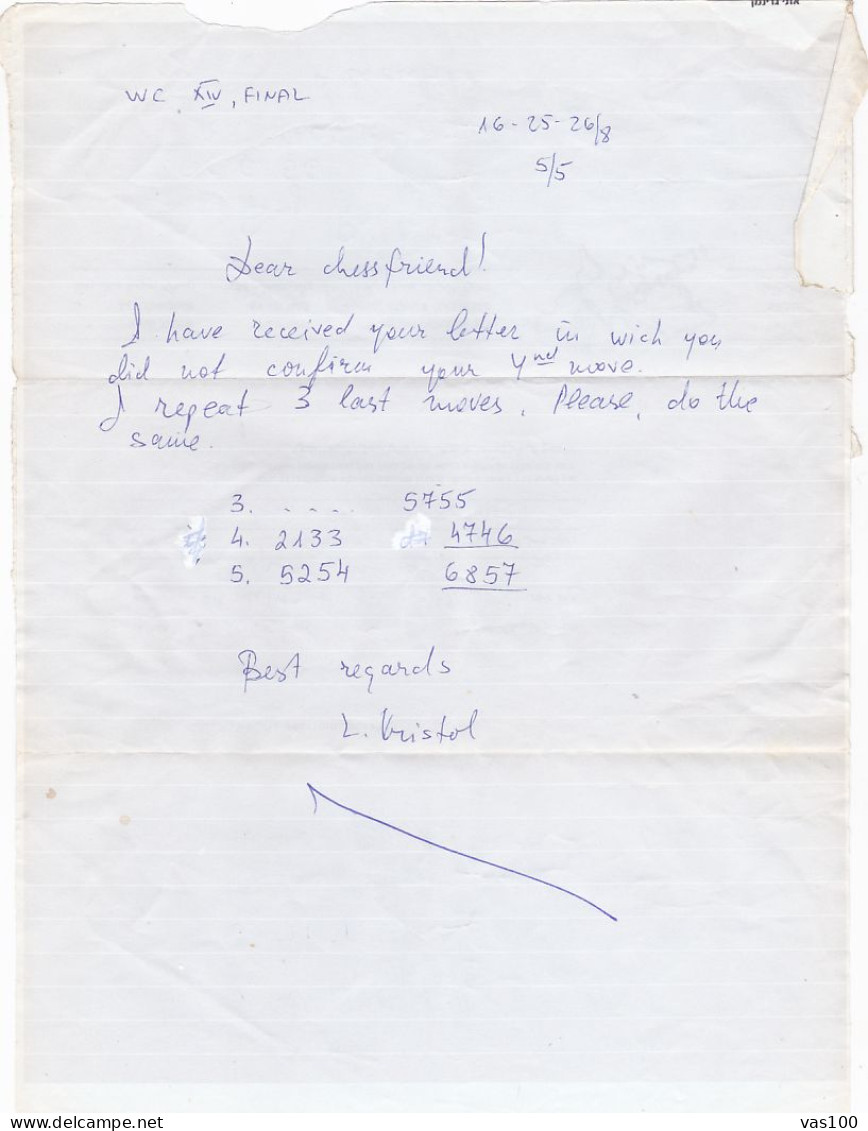 WC XIV, FINAL
16-25-26/8
5/5
Dear chessfriend!
I have received your letter in wich you
did not confirm your 4nd move.
I repeat 3 last moves. Please, do the
same.
3. . . . . 5755
4. 2133 4746
5. 5254 6857
Best regards
L. Kristol
vas100